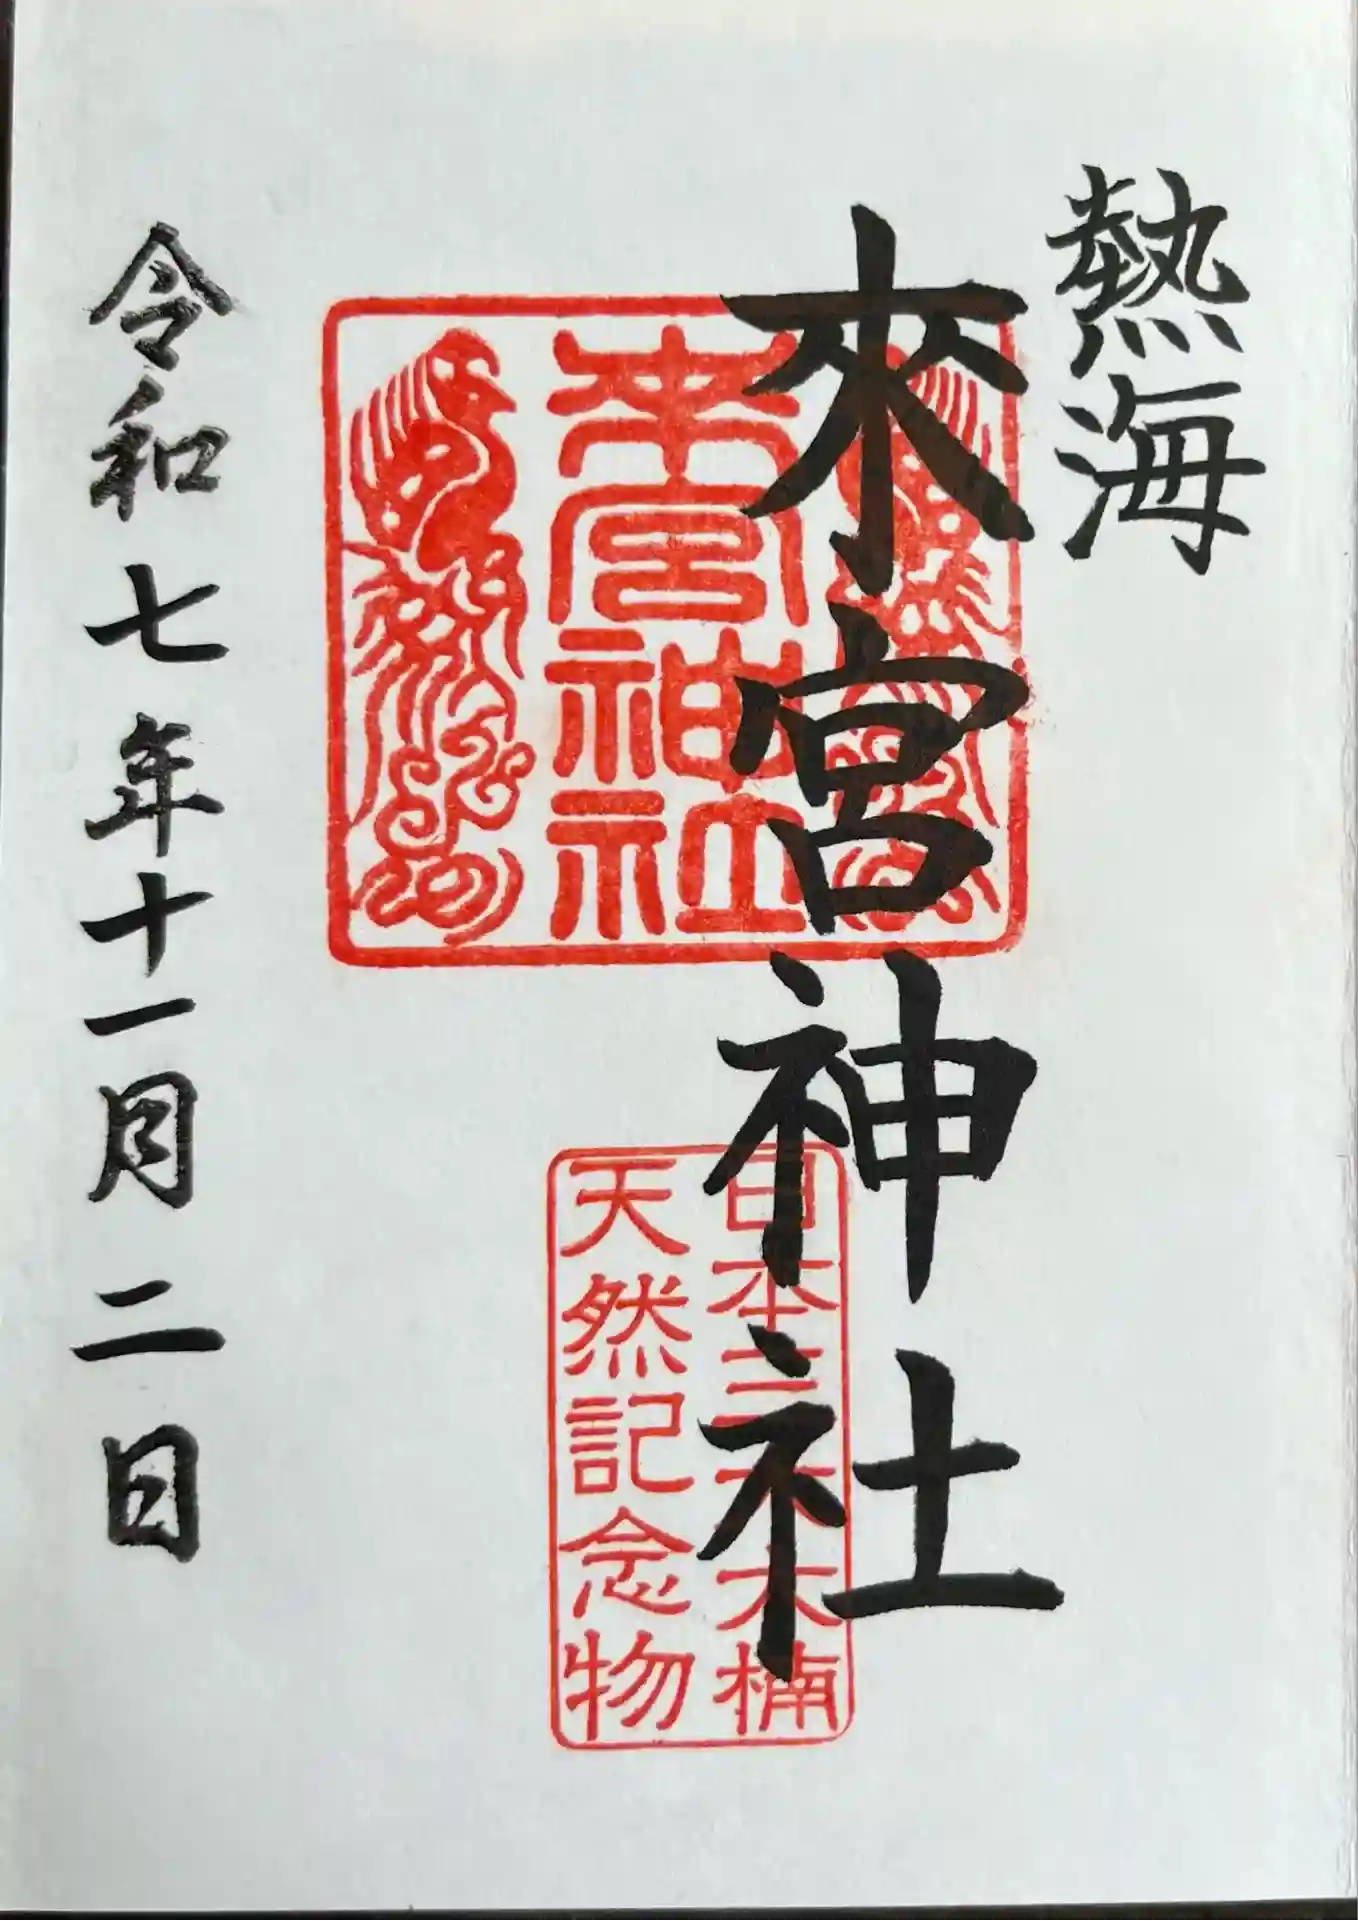 熱海
來宮神社
來宮
神社
日本三大大楠
天然記念物
令和七年十一月二日